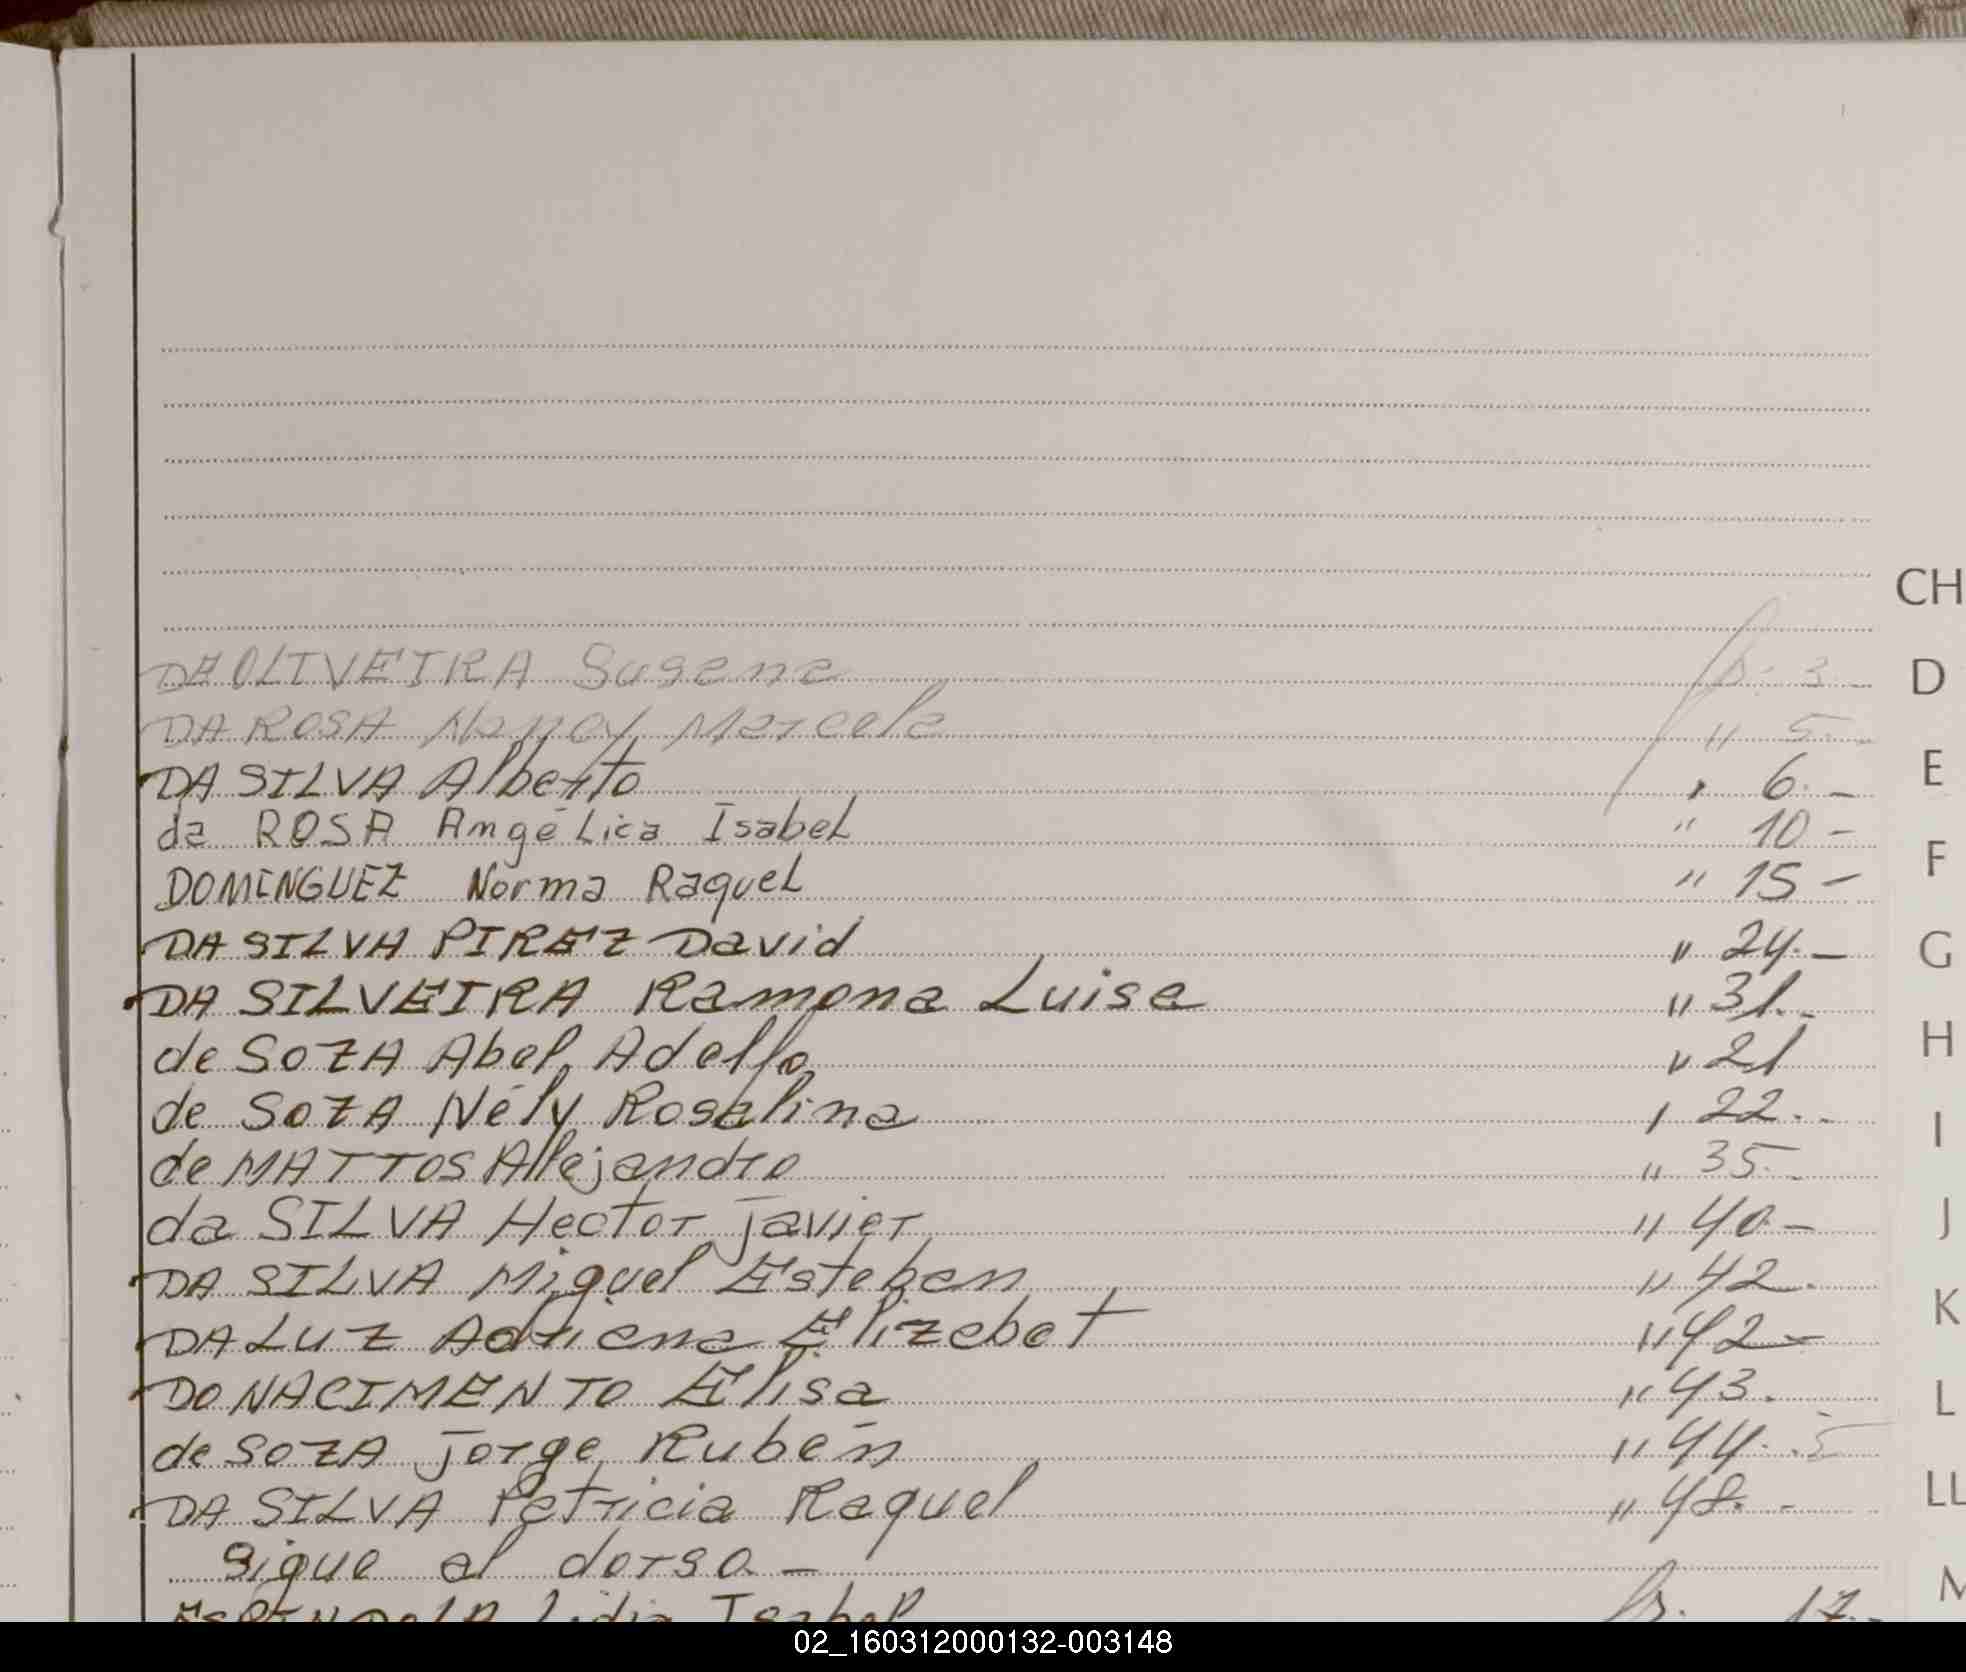 DE OLIVEIRA Susana 3.-
DA ROSA Nancy Marcela " 5.-
DA SILVA Alberto " 6.-
da ROSA Angélica Isabel " 10-
DOMINGUEZ Norma Raquel " 15-
DA SILVA PIREZ David " 24.-
DA SILVEIRA Ramona Luisa " 31.-
de SOZA Abel Adolfo " 21
de SOZA Nély Rosalina " 22.-
de MATTOS Allejandro " 35.-
da SILVA Hector Javier " 40.-
DA SILVA Miguel Esteban " 42.
DA LUZ Adriana Elizabet " 42-
DO NACIMENTO Elisa " 43.
de SOZA Jorge Rubén " 44.
DA SILVA Patricia Raquel " 48.-
Sigue al dorso -
ESPINDOLA Lidia Isabel 17.-
CH
D
E
F
G
H
I
J
K
L
LL
M
02_160312000132-003148